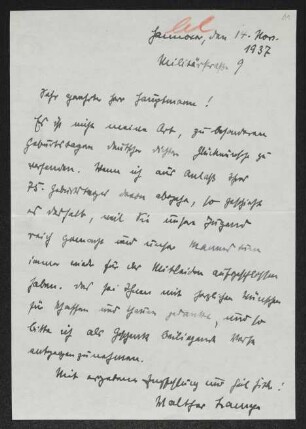 Hannover, den 14. Nov.
1937
Militärstrasse 9
Sehr geehrter Herr Hauptmann!
Es ist nicht meine Art, zu besonderen
Geburtstagen deutscher Dichter Glückwünsche zu
versenden. Wenn ich aus Anlass Ihres
75. Geburtstages davon abgehe, so geschieht
es deshalb, weil Sie unsere Jugend
reich gemacht und unser Mannestum
immer wieder für das Mitleiden aufgeschlossen
haben. Das sei Ihnen mit herzlichen Wünschen
für Schaffen und gedankt, und so
bitte ich als beiliegende Verse
entgegenzunehmen.
Mit ergebener Empfehlung und
Walther Lampe